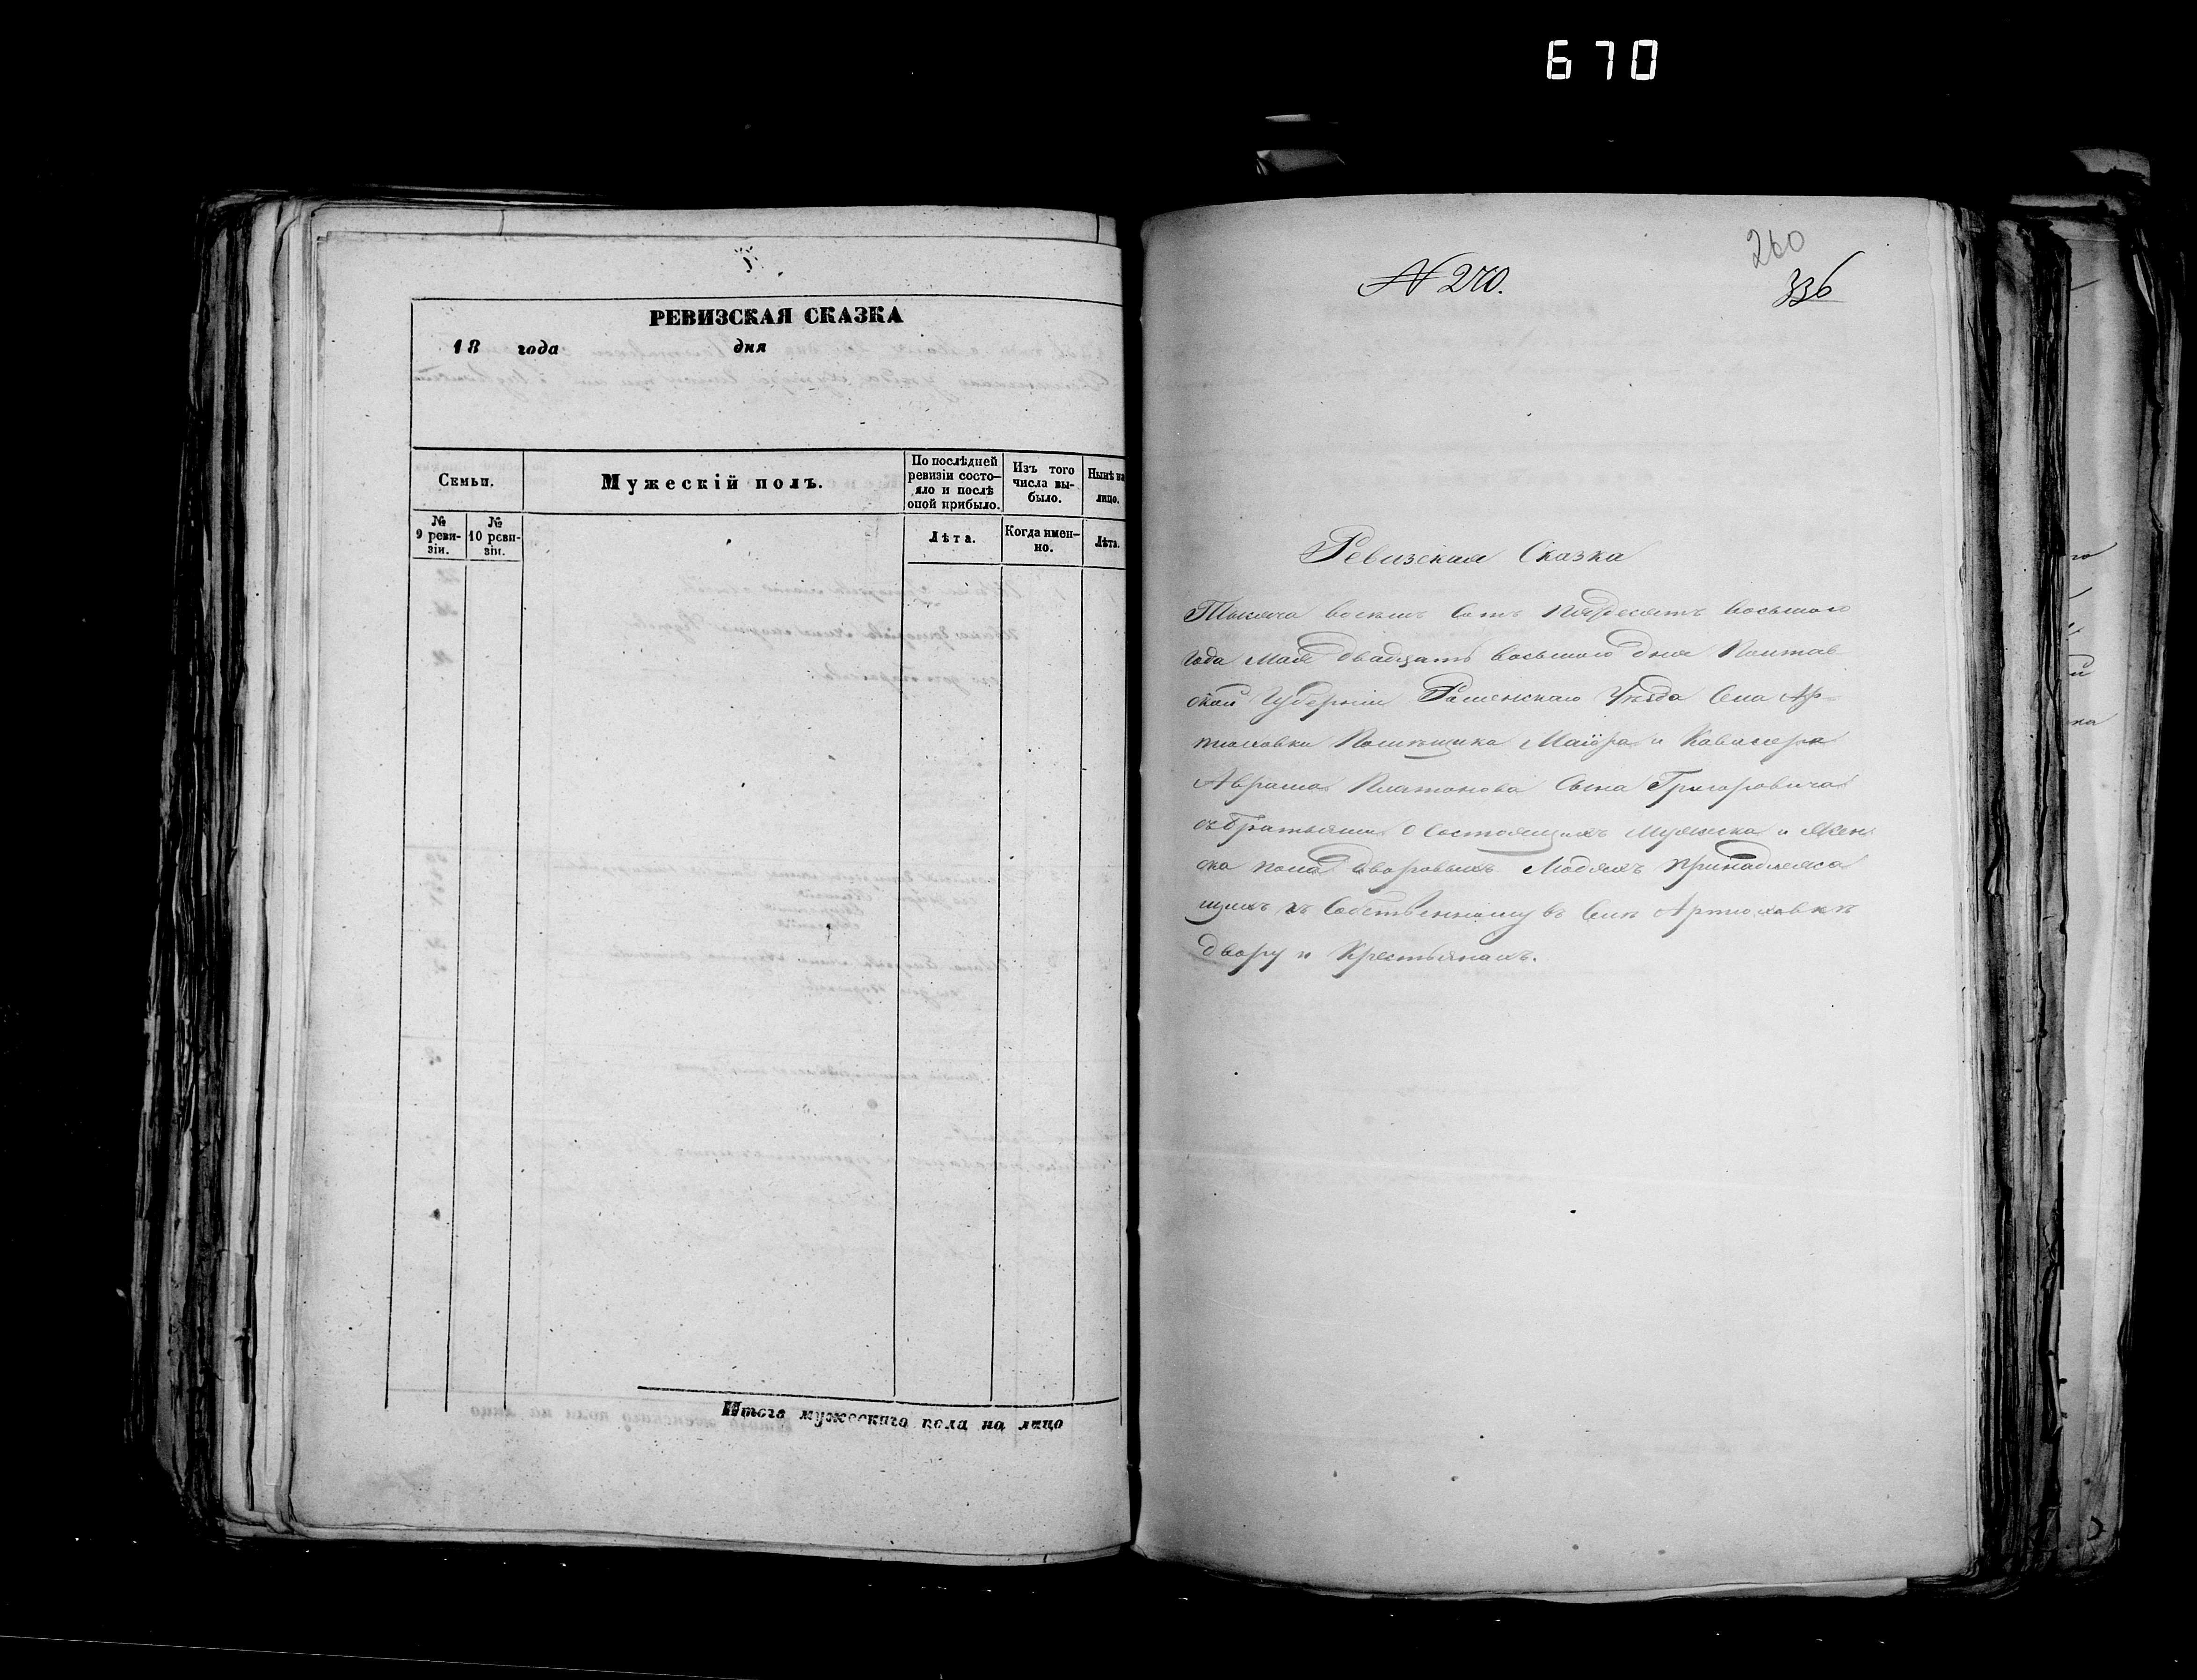 670
РЕВИЗСКАЯ СКАЗКА
18 года дня
Семьи.
Мужескій полъ.
По послѣдней ревизіи состо-
яло и послѣ
оной прибыло.
Изъ того
числа вы-
было.
Нынѣ на
лицо.
№
9 реви-
зіи.
№
10 реви-
зіи.
Лѣта.
Когда имен-
но.
Лѣта.
Итого мужескаго пола на лицо
260
336
N 270.
Ревизская Сказка
Тысяча восемь сотъ Пятдесятъ восьмого
года Мая двадцать восьмого дня Полтав
ской Губерніи Роменскаго Уѣзда Села Ар-
тюховки Помѣщика Маіора и Кавалера
Аврама Платонова Сына Григоровича
съ братьями о состоящихъ Мужеска и Жен
ска пола дворовыхъ Людяхъ принадлежа
щихъ къ Собственному въ Селѣ Артюховкѣ
двору и Крестьянахъ.